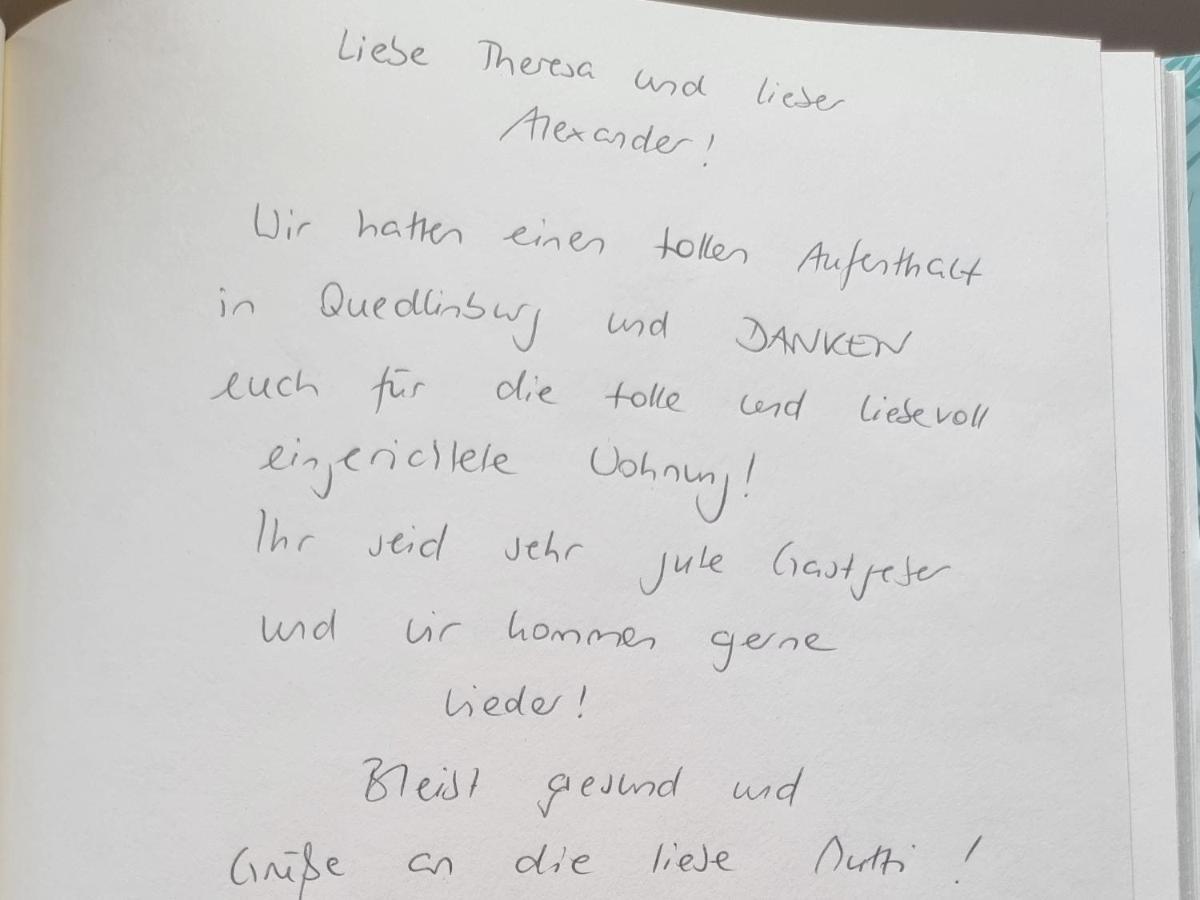 Liebe Theresa und lieber
Alexander!
Wir hatten einen tollen Aufenthalt
in Quedlinburg und DANKEN
euch für die tolle und liebevoll
eingerichtete Wohnung!
Ihr seid sehr gute Gastgeber
und wir kommen gerne
wieder!
Bleibt gesund und
Grüße an die liebe Mutti!